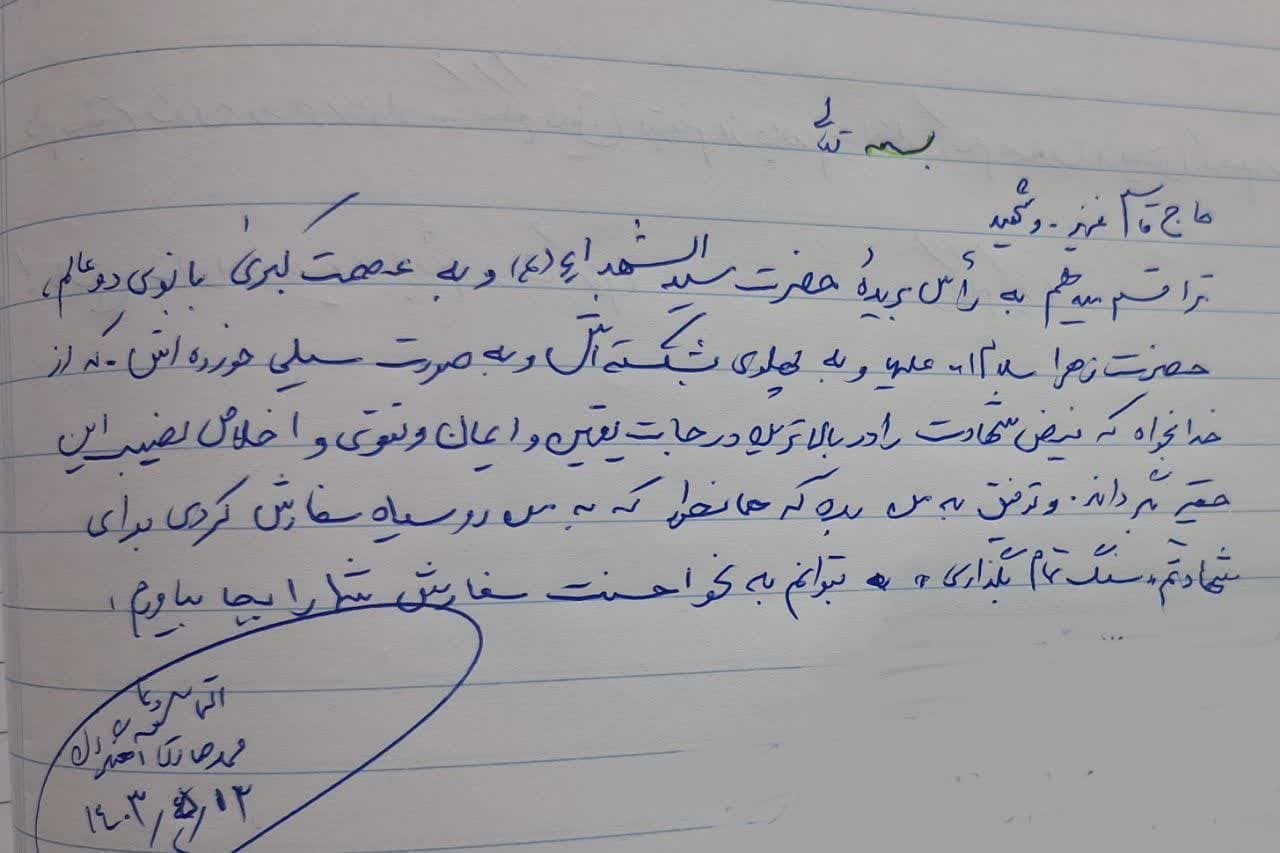 بسمه تعالی
حاج قاسم عزیز - و شهید
ترا قسم میدهم به رأس بریدهٔ حضرت سید الشهداء (ع) و به عصمت کبریٰ بانوی دو عالم،
حضرت زهرا سلام ا... علیها و به پهلوی شکسته‌اش و به صورت سیلی خورده‌اش - که از
خدا بخواه که فیض شهادت را در بالاترین درجات یقین و ایمان و تقوی و اخلاص نصیب این
حقیر بگرداند. و توفیق به من بده که همانطور که به من رو سیاه سفارش کردی برای
شهادتم «سنگ تمام بگذاری» بتوانم به نحو احسنت سفارش شما را بجا بیاورم.
...
التماس دعا
محمدرضا
۱۴۰۳/ /۱۳